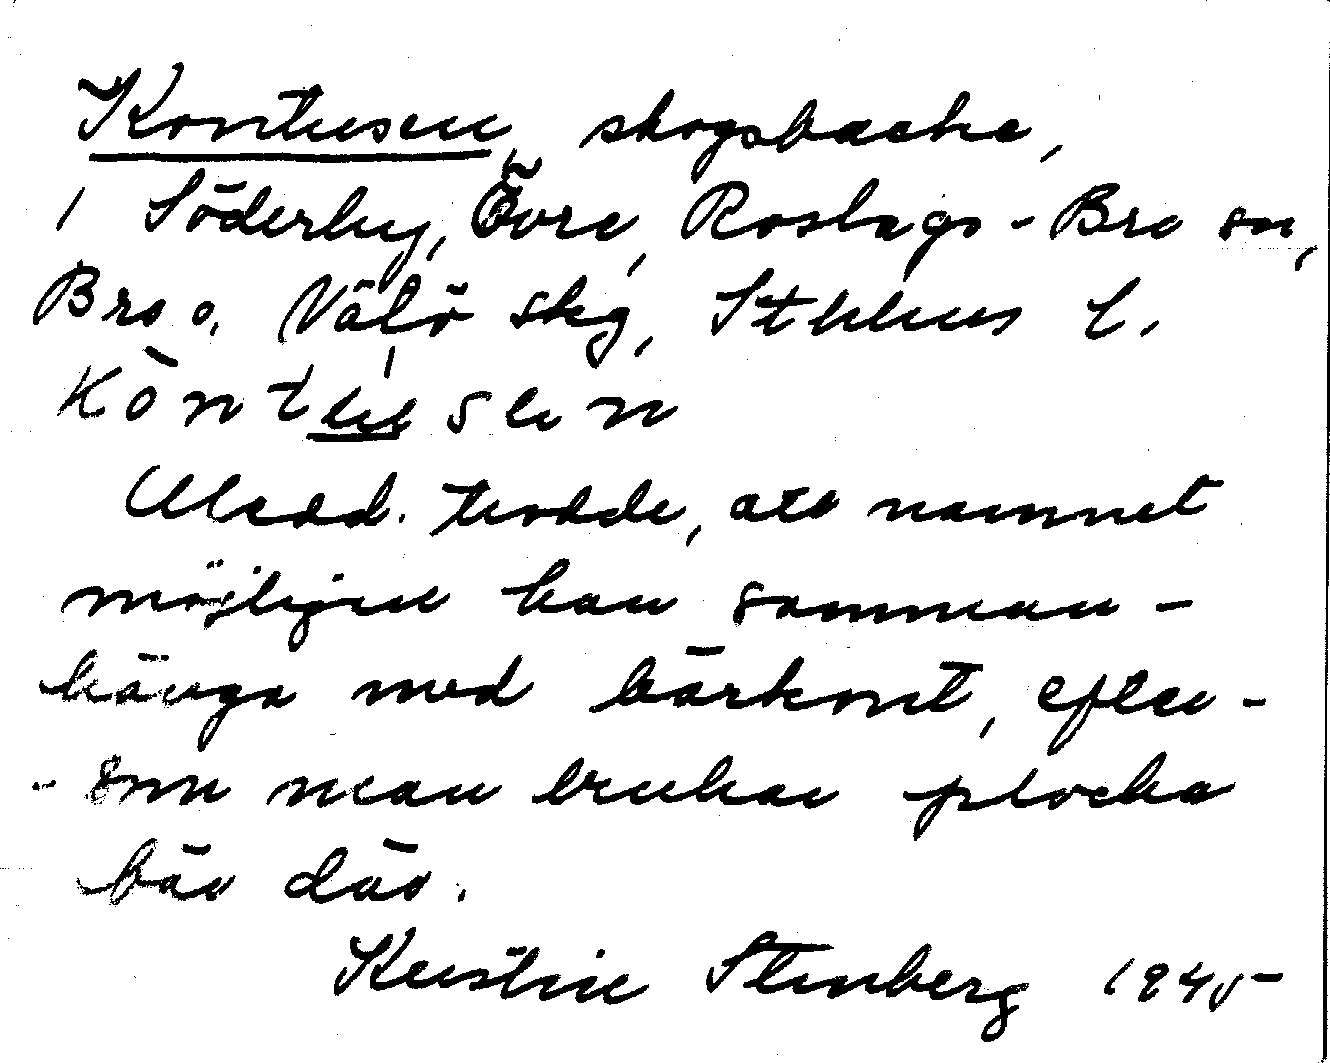 Kontusen, skogsbacke,
i Söderby, Övre, Roslags-Bro sn,
Bro o. Väłö skg, Sthlms l.
kòntu̱sen
Medd. trodde, att namnet
möjligen kan samman-
hänga med bärkont, efter-
som man brukar plocka
bär där.
Kerstin Stenberg 1945